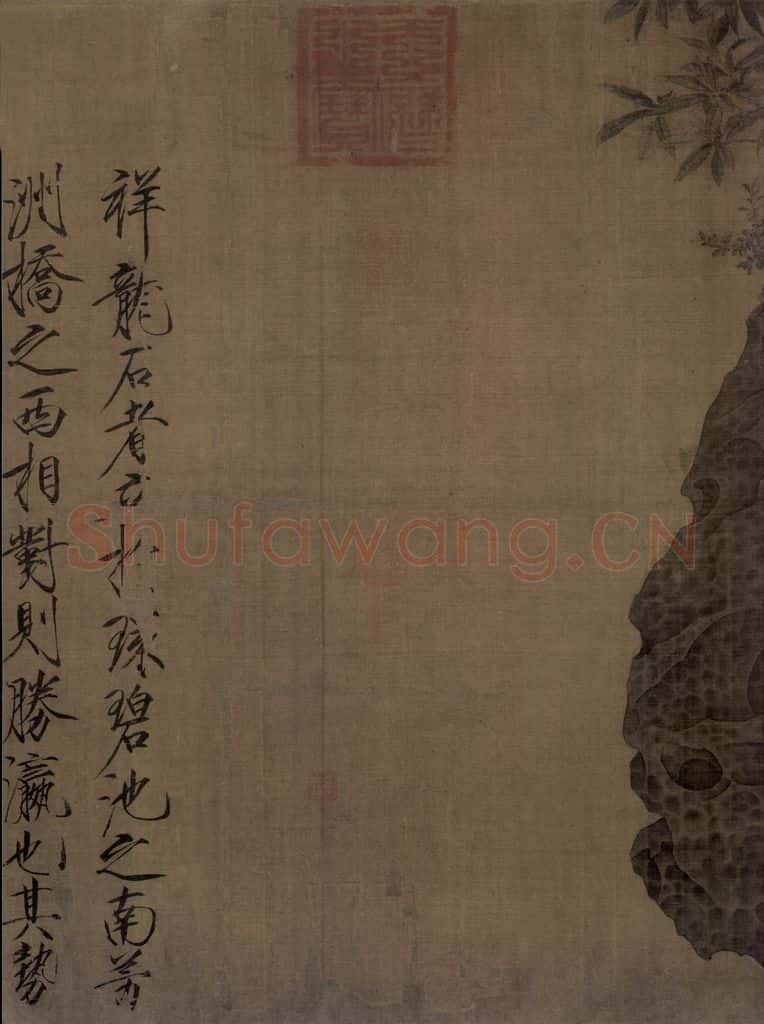 祥龍石者立於環碧池之南芳
洲橋之西相對則勝瀛也其勢
Shufawang.CN